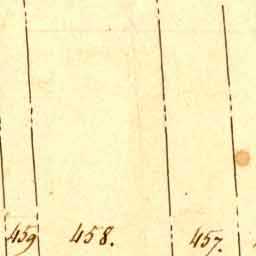 459 458. 457.